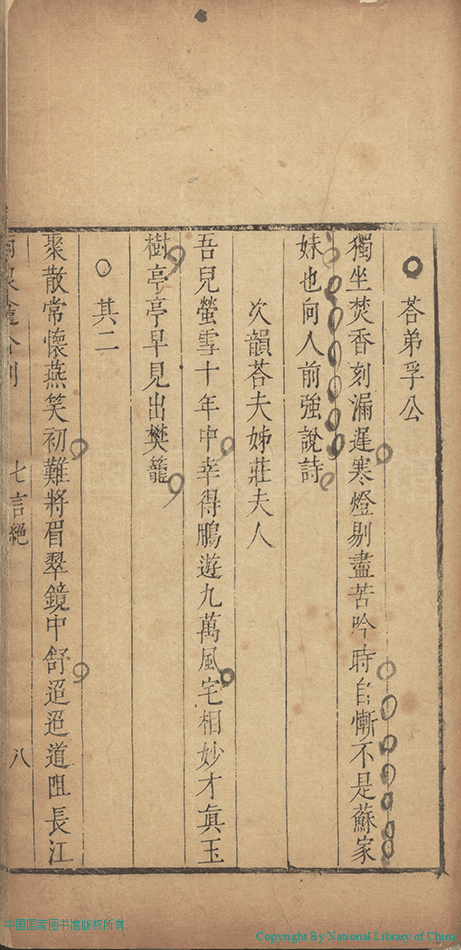 荅弟孚公
獨坐焚香刻漏遲寒燈剔盡苦吟時自慚不是蘇家
妹也向人前強說詩
次韻荅夫姊莊夫人
吾兒螢雪十年中幸得鵬遊九萬風宅相妙才真玉
樹亭亭早見出樊籠
其二
聚散常懷燕笑初難將眉翠鏡中舒迢迢道阻長江
七言絕
八
中国国家图书馆版权所有
Copyright By National Library of China